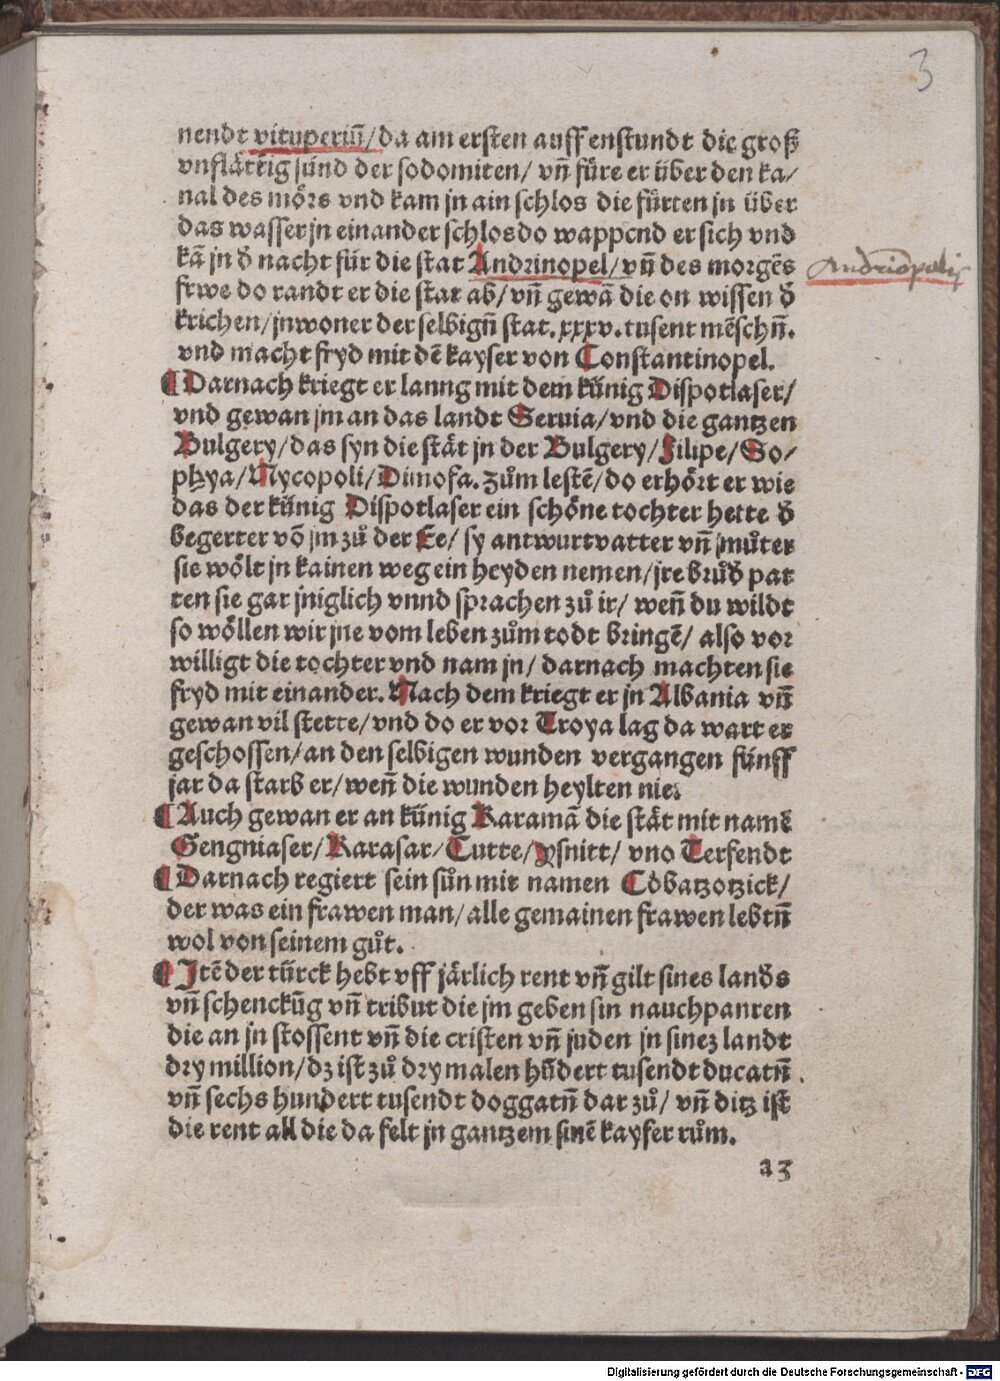 3
nendt vituperiū/da am ersten auff enstundt die groß
vnflättig sünd der sodomiten/ vn̄ füre er über den ka/
nal des mörs vnd kam jn ain schlos die fürten jn über
das wasser jn ein ander schlos do wappend er sich vnd
kā jn d̄ nacht für die stat Andrinopel/ vn̄ des morgēs
Andrinopolis
frwe do randt er die stat ab/ vn̄ gewā die on wissen d̄
krichen/ jnwoner der selbign̄ stat. xxxv. tusent mēschn̄.
vnd macht fryd mit dē kayser von Constantinopel.
¶ Darnach kriegt er lanng mit dem künig Dispotlaser/
vnd gewan jm an das landt Seruia/ vnd die gantzen
Bulgery/ das syn die stät jn der Bulgery/ Filipe/ So/
phya/ Nycopoli/ Dimofa. zům lestē/ do erhört er wie
das der künig Dispotlaser ein schöne tochter hette d̄
begerter vō jm zů der Ee/ sy antwurt vatter vn̄ můter
sie wölt jn kainen weg ein heyden nemen/ jre brůd̄ pat
ten sie gar jniglich vnnd sprachen zů ir/ wen̄ du wildt
so wöllen wir jne vom leben zům todt bringē/ also vor
willigt die tochter vnd nam jn/ darnach machten sie
fryd mit einander. Nach dem kriegt er jn Albania vn̄
gewan vil stette/ vnd do er vor Troya lag da wart er
geschossen/ an den selbigen wunden vergangen fünff
jar da starb er/ wen̄ die wunden heylten nie.
¶ Auch gewan er an künig Karamā die stät mit namē
Gengniaser/ Karasar/ Tutte/ ysnitt/ vno Terfendt
¶ Darnach regiert sein sůn mit namen Cöbatzotzick/
der was ein frawen man/ alle gemainen frawen lebtn̄
wol von seinem gůt.
¶ Itē der türck hebt vff järlich rent vn̄ gilt sines land̄s
vn̄ schenckūg vn̄ tribut die jm geben sin nauchpanren
die an jn stossent vn̄ die cristen vn̄ juden jn sinez landt
dry million/ dz ist zů dry malen hūdert tusendt ducatn̄
vn̄ sechs hundert tusendt doggatn̄ dar zů/ vn̄ ditz ist
die rent all die da felt jn gantzem sinē kayser rům.
a3
Digitalisierung gefördert durch die Deutsche Forschungsgemeinschaft - DFG